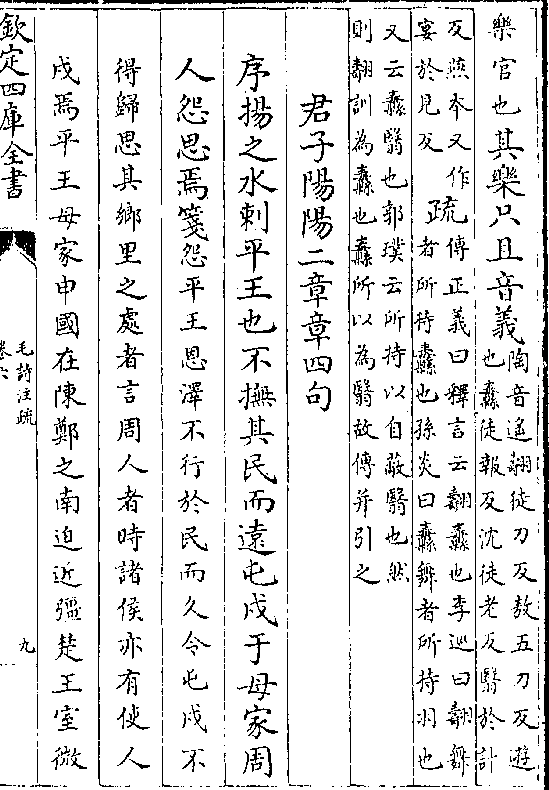 樂官也其樂只且音義陶音遙翿徒刀反敖五刀反遊
也纛徒報反沈徒老反翳於計
反燕本又作
宴於見反疏傳正義曰釋言云翿纛也李巡曰翿舞
者所持纛也孫炎曰纛舞者所持羽也
又云纛翳也郭璞云所持以自蔽翳也然
則翿訓為纛也纛所以為翳故傳并引之
君子陽陽二章章四句
序揚之水刺平王也不撫其民而遠屯戍于母家周
人怨思焉箋怨平王恩澤不行於民而久令屯戍不
得歸思其鄉里之處者言周人者時諸侯亦有使人
戍焉平王母家申國在陳鄭之南迫近彊楚王室微
欽定四庫全書
毛詩注疏
卷六
九